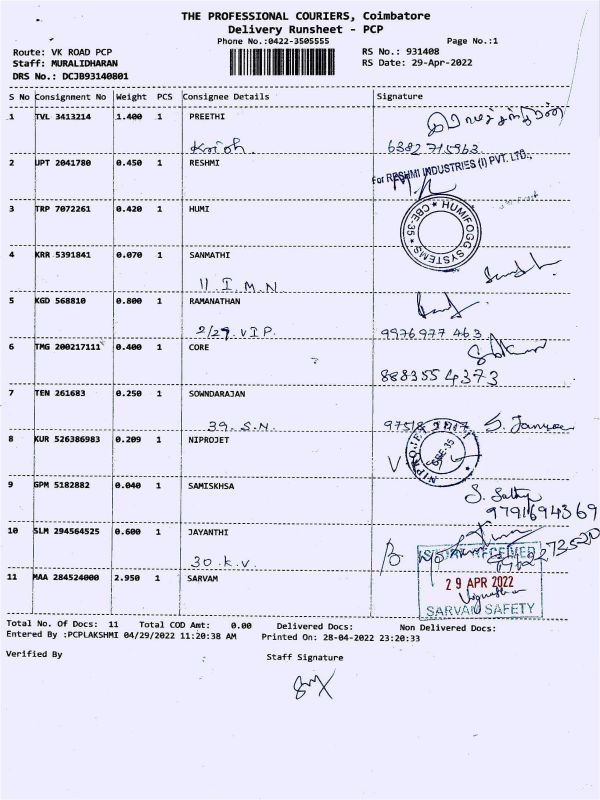 THE PROFESSIONAL COURIERS, Coimbatore
Delivery Runsheet - PCP
Phone No.:0422-3505555 Page No.:1
Route: VK ROAD PCP RS No.: 931408
Staff: MURALIDHARAN RS Date: 29-Apr-2022
DRS No.: DCJB93140801
S No Consignment No Weight PCS Consignee Details Signature
1 TVL 3413214 1.400 1 PREETHI
6382 715963
2 UPT 2041780 0.450 1 RESHMI
For RESHMI INDUSTRIES (I) PVT. LTD.,
3 TRP 7072261 0.420 1 HUMI
HUMIFOGG SYSTEMS ★ CBE-35 ★
4 KRR 5391841 0.070 1 SANMATHI
11 I.M.N
5 KGD 568810 0.800 1 RAMANATHAN
2/29 V.I.P. 9976977 463
6 TMG 200217111 0.400 1 CORE
8883554373
7 TEN 261683 0.250 1 SOWNDARAJAN
39. S.N.
8 KUR 526386983 0.209 1 NIPROJET
NIPROJET
CBE-35
9 GPM 5182882 0.040 1 SAMISKHSA
S. Sathy
9791694369
10 SLM 294564525 0.600 1 JAYANTHI
30 K.V.
11 MAA 284524000 2.950 1 SARVAM
RECEIVED
29 APR 2022
SARVAM SAFETY
Total No. Of Docs: 11 Total COD Amt: 0.00 Delivered Docs: Non Delivered Docs:
Entered By :PCPLAKSHMI 04/29/2022 11:20:38 AM Printed On: 28-04-2022 23:20:33
Verified By Staff Signature